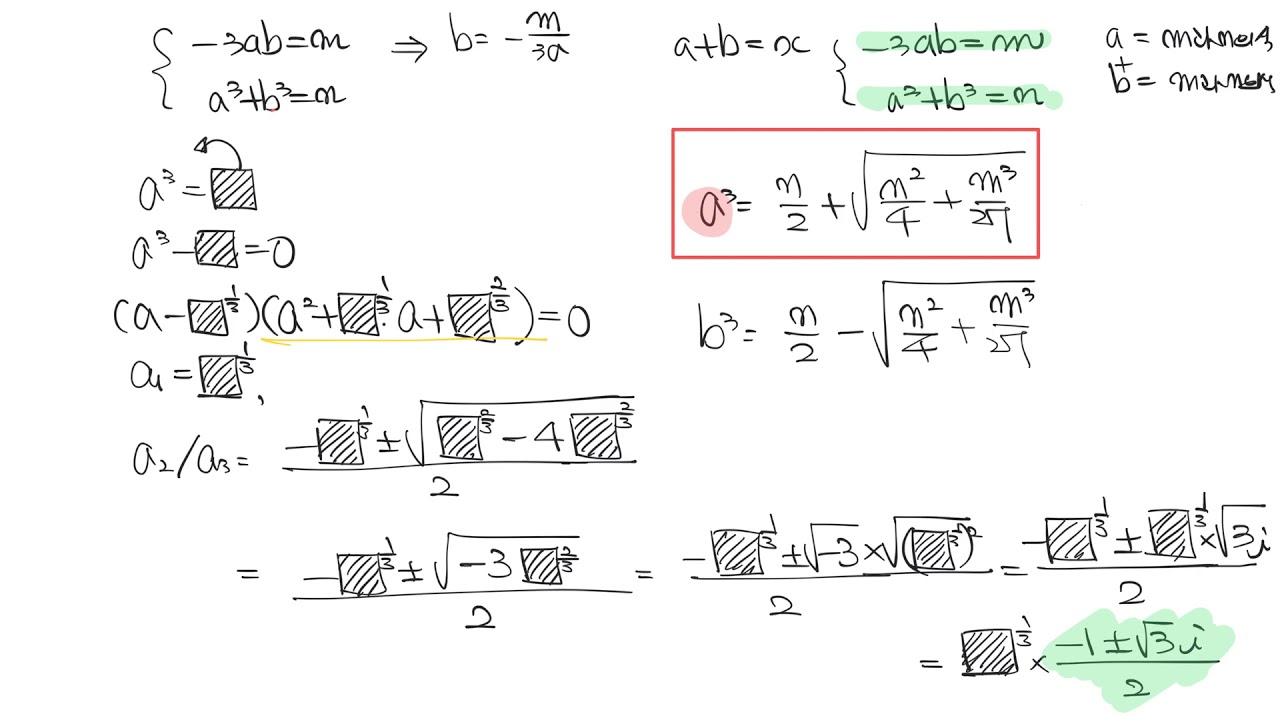 -3ab=m ⇒ b= -m/3a
a³+b³=n
a+b=x
-3ab=m
a³+b³=n
a =
+
b =
a³ = ▨
a³ - ▨ = 0
(a - ▨^(1/3))(a² + ▨^(1/3)·a + ▨^(2/3)) = 0
a₁ = ▨^(1/3),
a₂/a₃ = (-▨^(1/3) ± √(▨^(2/3) - 4▨^(2/3)))/2
= (-▨^(1/3) ± √(-3▨^(2/3)))/2 = (-▨^(1/3) ± √-3 × √(▨^(1/3))²)/2 = (-▨^(1/3) ± ▨^(1/3) × √3i)/2
= ▨^(1/3) × (-1±√3i)/2
a³ = n/2 + √(n²/4 + m³/27)
b³ = n/2 - √(n²/4 + m³/27)